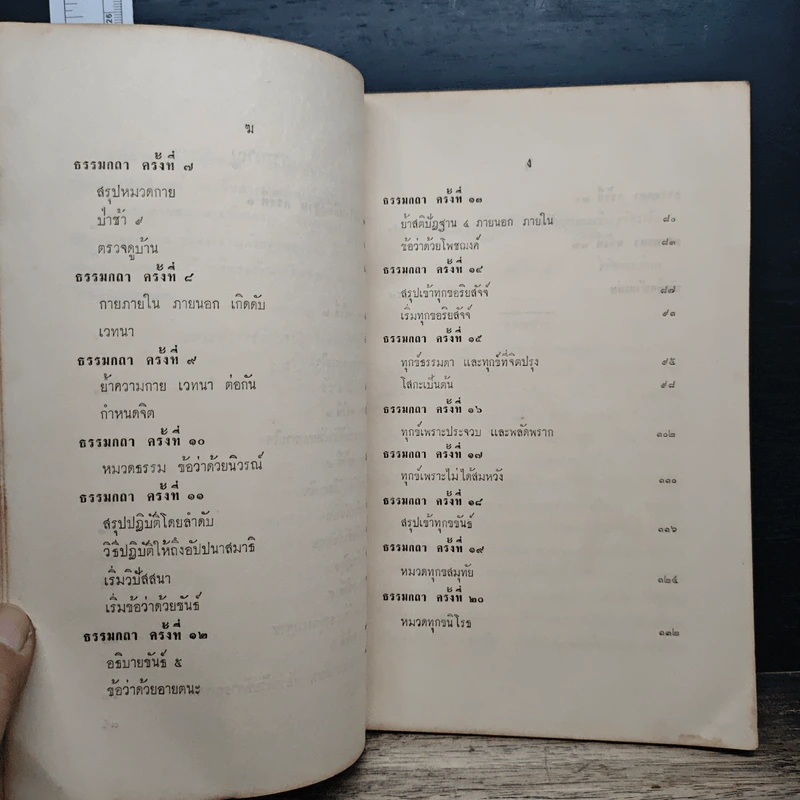 ฆ
ธรรมกถา ครั้งที่ ๗
สรุปหมวดกาย
ป่าช้า ๙
ตรวจดูบ้าน
ธรรมกถา ครั้งที่ ๘
กายภายใน ภายนอก เกิดดับ
เวทนา
ธรรมกถา ครั้งที่ ๙
ย้ำความกาย เวทนา ต่อกัน
กำหนดจิต
ธรรมกถา ครั้งที่ ๑๐
หมวดธรรม ข้อว่าด้วยนิวรณ์
ธรรมกถา ครั้งที่ ๑๑
สรุปปฏิบัติโดยลำดับ
วิธีปฏิบัติให้ถึงอัปปนาสมาธิ
เริ่มวิปัสสนา
เริ่มข้อว่าด้วยขันธ์
ธรรมกถา ครั้งที่ ๑๒
อธิบายขันธ์ ๕
ข้อว่าด้วยอายตนะ
ง
ธรรมกถา ครั้งที่ ๑๓
ย้ำสติปัฏฐาน ๔ ภายนอก ภายใน ๘๐
ข้อว่าด้วยโพชฌงค์ ๘๓
ธรรมกถา ครั้งที่ ๑๔
สรุปเข้าทุกขอริยสัจจ์ ๘๗
เริ่มทุกขอริยสัจจ์ ๙๑
ธรรมกถา ครั้งที่ ๑๕
ทุกข์ธรรมดา และทุกข์ที่จิตปรุง ๙๕
โสกะเป็นต้น ๙๘
ธรรมกถา ครั้งที่ ๑๖
ทุกข์เพราะประจวบ และพลัดพราก ๑๐๒
ธรรมกถา ครั้งที่ ๑๗
ทุกข์เพราะไม่ได้สมหวัง ๑๑๐
ธรรมกถา ครั้งที่ ๑๘
สรุปเข้าทุกขขันธ์ ๑๑๖
ธรรมกถา ครั้งที่ ๑๙
หมวดทุกขสมุทัย ๑๒๔
ธรรมกถา ครั้งที่ ๒๐
หมวดทุกขนิโรธ ๑๓๒